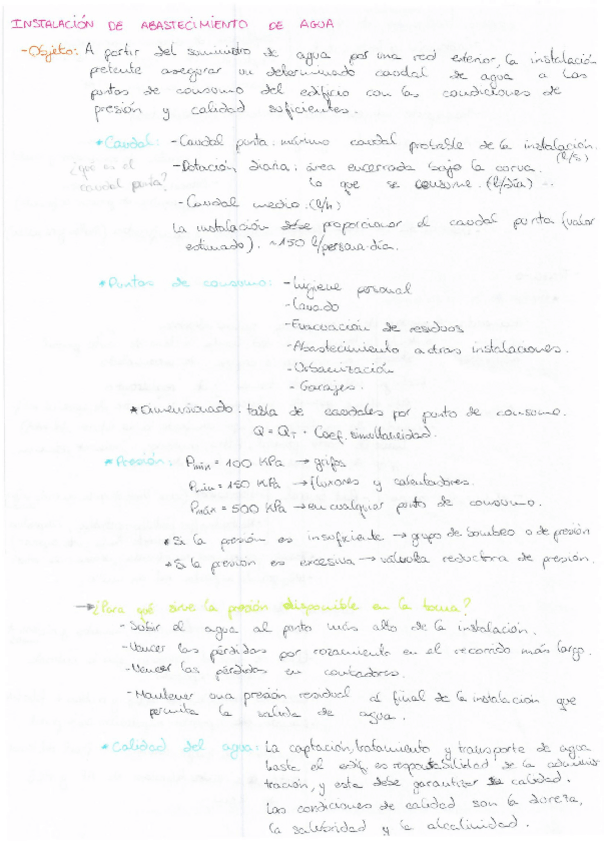 INSTALACIÓN DE ABASTECIMIENTO DE AGUA
-Objeto: A partir del suministro de agua por una red exterior, la instalación
pretente asegurar un determinado caudal de agua a los
puntos de consumo del edificio con las condiciones de
presión y calidad suficientes.
*Caudal: -Caudal punta: máximo caudal probable de la instalación. (l/s)
¿qué es el caudal punta?
-Dotación diaria: área encerrada bajo la curva.
lo que se consume. (l/día)
-Caudal medio. (l/h)
La instalación debe proporcionar el caudal punta (valor
estimado). ~150 l/persona·día.
*Puntos de consumo: -Higiene personal
-Lavado
-Evacuación de residuos
-Abastecimiento a otras instalaciones.
-Urbanización
-Garajes.
*Dimensionado: tabla de caudales por punto de consumo.
Q = QT · Coef. simultaneidad.
*Presión: Pmín = 100 KPa → grifos
Pmín = 150 KPa → fluxores y calentadores.
Pmáx = 500 KPa → en cualquier punto de consumo.
*Si la presión es insuficiente → grupo de bombeo o de presión
*Si la presión es excesiva → válvula reductora de presión.
→ ¿Para qué sirve la presión disponible en la toma?
-Subir el agua al punto más alto de la instalación.
-Vencer las pérdidas por rozamiento en el recorrido más largo.
-Vencer las pérdidas en contadores.
-Mantener una presión residual al final de la instalación que
permita la salida de agua.
*Calidad del agua: La captación, tratamiento y transporte de agua
hasta el edif. es responsabilidad de la adminis
tración, y esta debe garantizar su calidad.
Las condiciones de calidad son la dureza,
la salubridad y la alcalinidad.